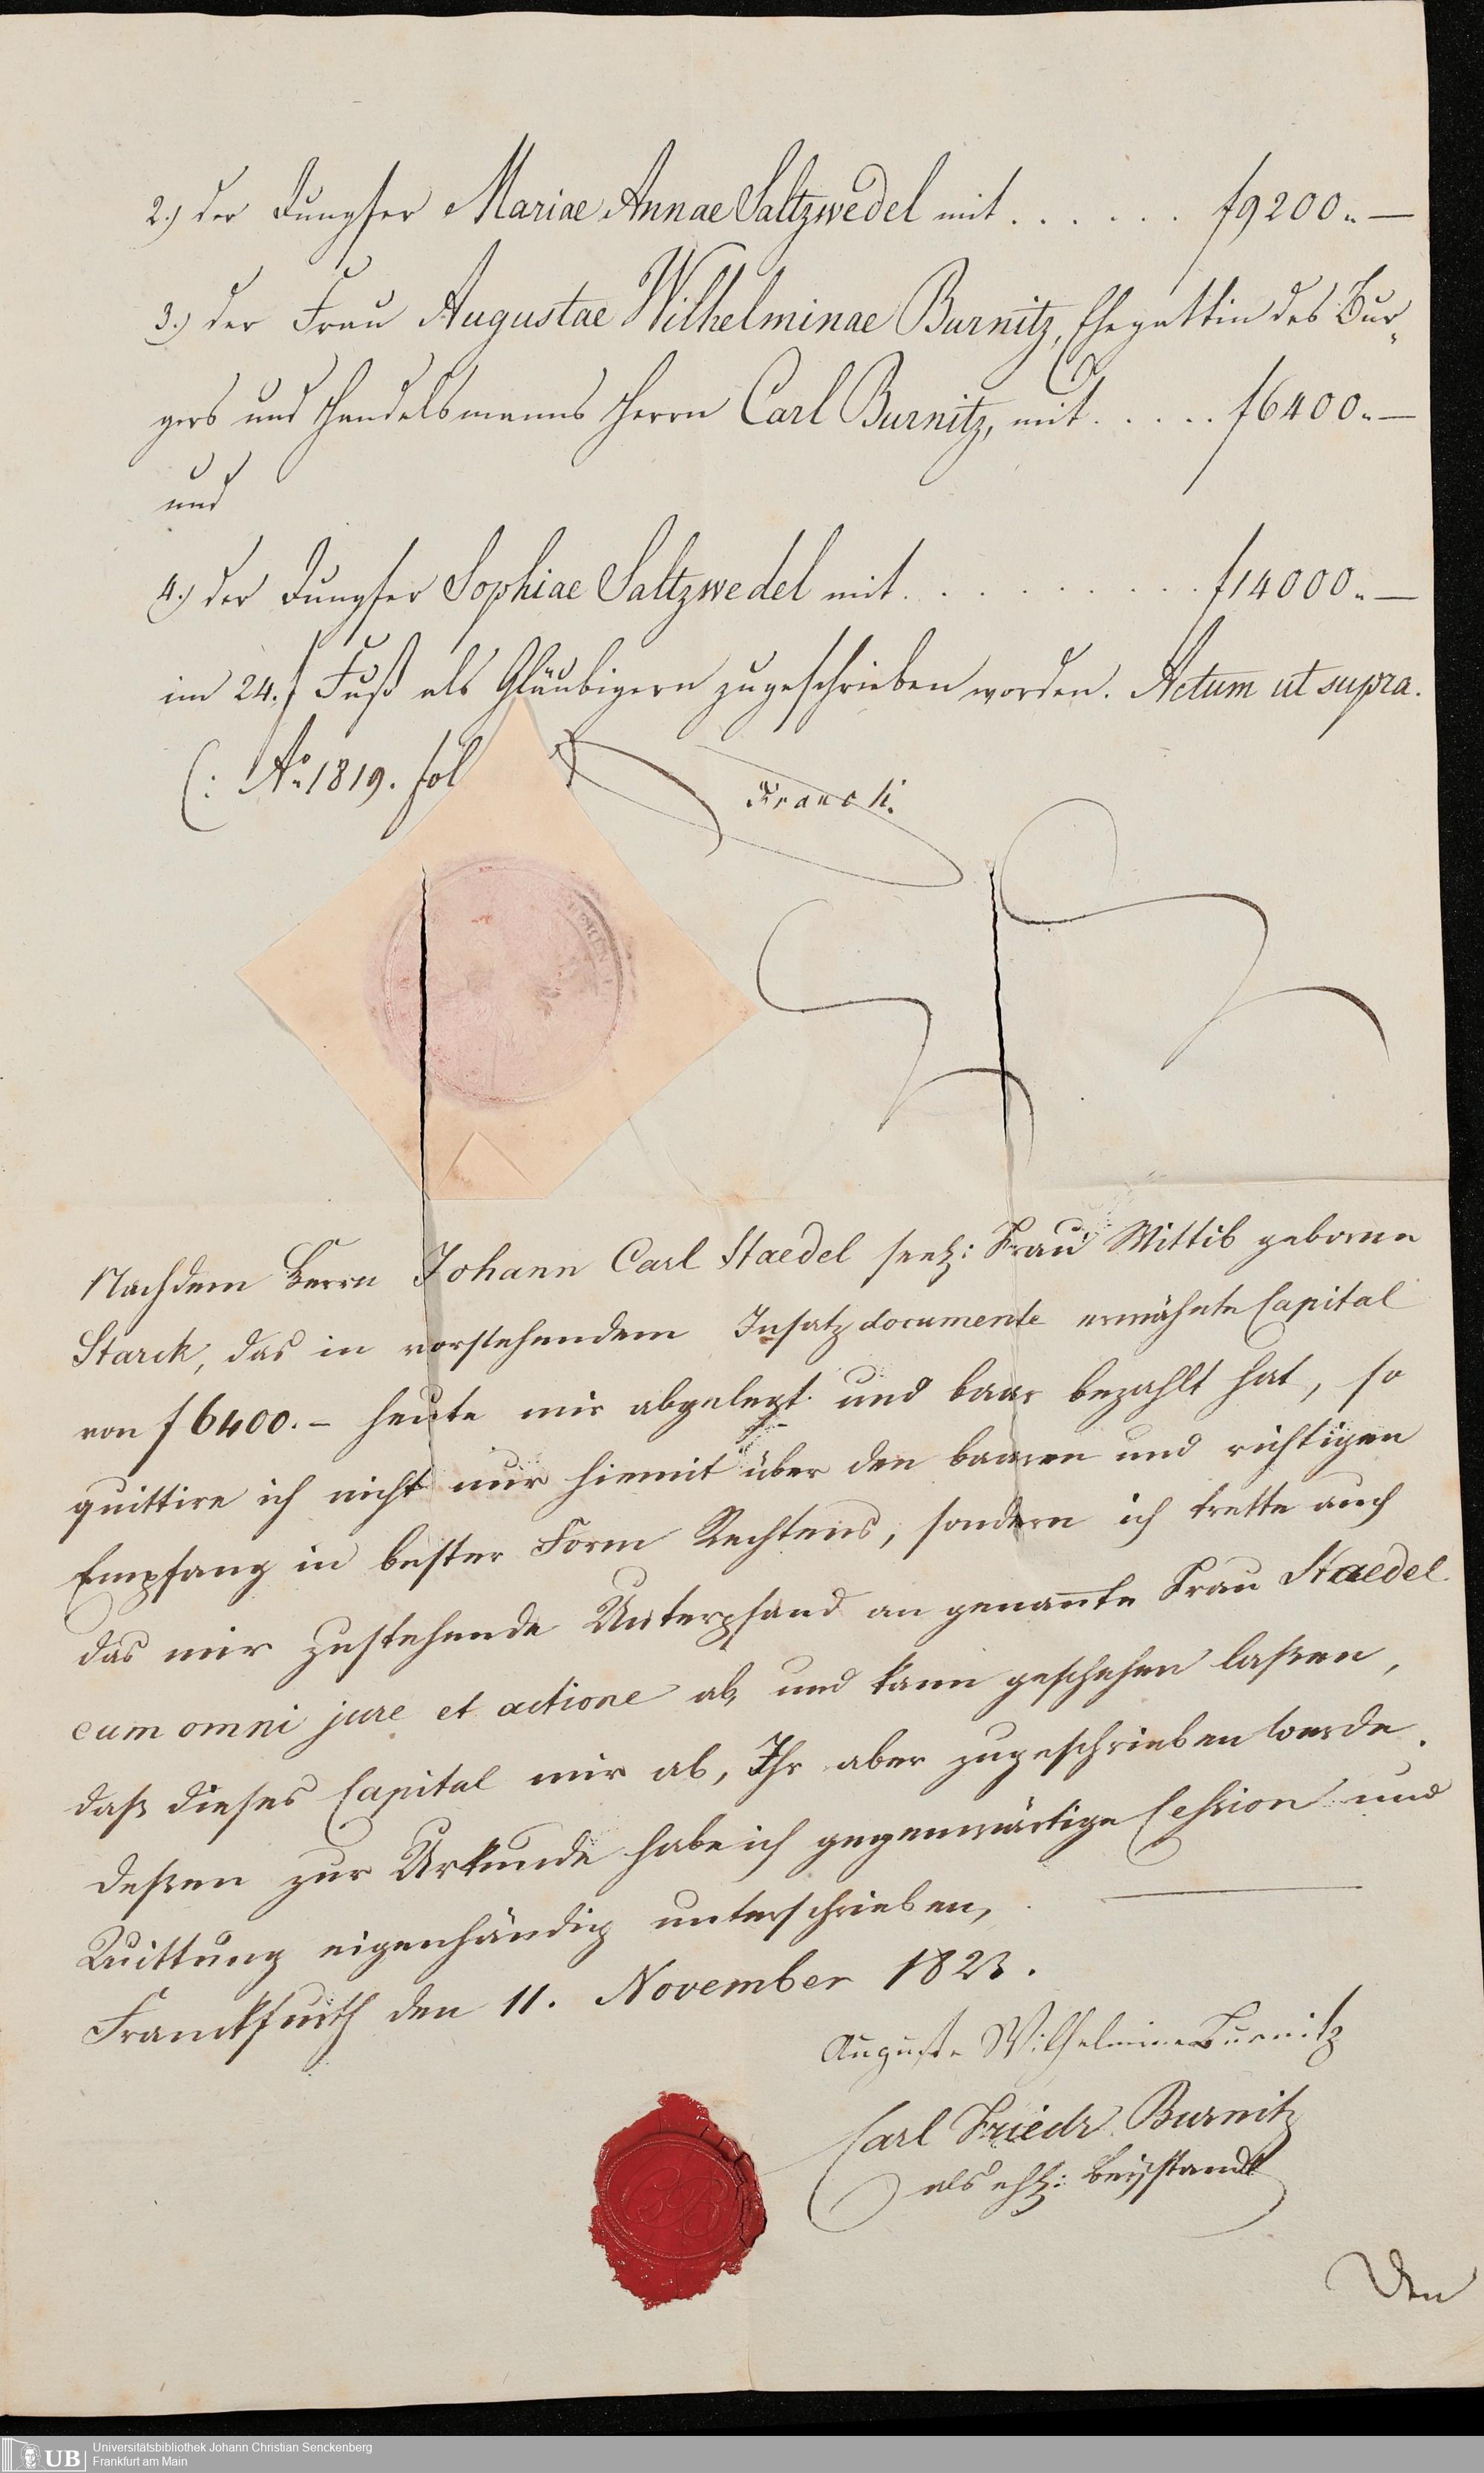 2.) der Jungfer Mariae Annae Saltzwedel mit . . . . . . f9200.. —
3.) der Frau Augustae Wilhelminae Burnitz, Ehegattin des Bur„
gers und Handelsmanns Herrn Carl Burnitz, mit . . . . . f6400.. —
und
4.) der Jungfer Sophiae Saltzwedel mit . . . . . . . . . . f14000.. —
im 24. f Fuß als Gläubigern zugeschrieben worden. Actum ut supra.
(: Ao. 1819. fol
Franck.
Nachdem Herrn Johann Carl Staedel seel: Frau Wittib geborne
Starck, das in vorstehendem Insatzdocumente erwähnte Capital
von f 6400. – heute mir abgelegt und baar bezahlt hat, so
quittire ich nicht nur hiemit über den baaren und richtigen
Empfang in bester Form Rechtens, sondern ich trette auch
das mir zustehende Unterpfand an genannte Frau Staedel
cum omni jure et actione ab, und kann geschehen laßen,
daß dieses Capital mir ab, Ihr aber zugeschrieben werde.
Deßen zur Urkunde habe ich gegenwärtige Cession und
Quittung eigenhändig unterschrieben,
Franckfurth den 11. November 1823.
Auguste Wilhelmine Burnitz
Carl Friedr. Burnitz
als ehl: Beystandt
Den
Universitätsbibliothek Johann Christian Senckenberg
UB
Frankfurt am Main